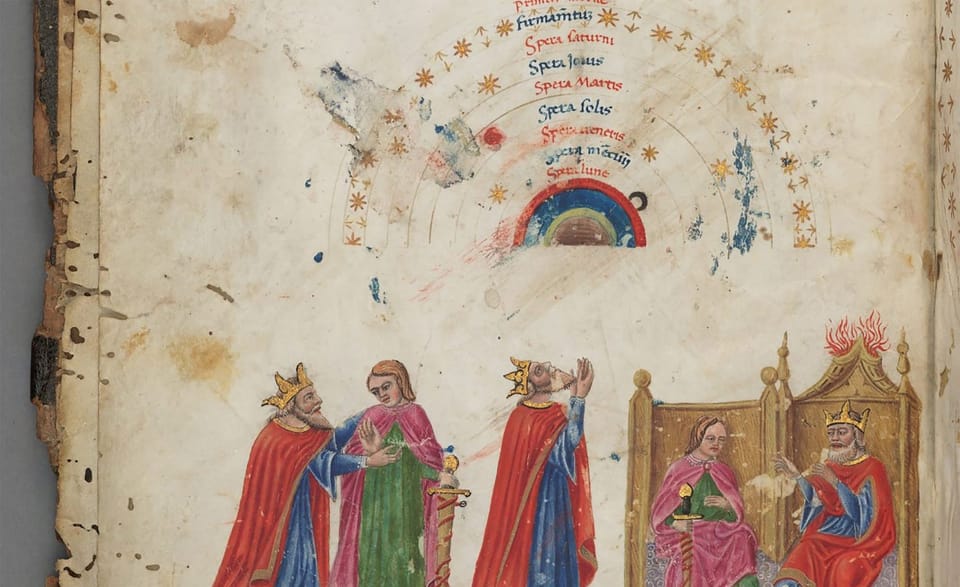 primum mobile
firmamētuz
Spera saturni
Spera Jouis
Spera Martis
Spera solis
Spera ueneris
Spera mercurij
Spera lune